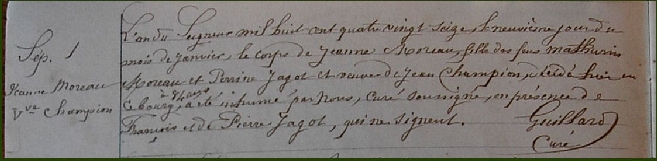 Sép. 1
Jeanne Moreau
Vve Champion
L'an du Seigneur mil huit cent quatre vingt seize, le neuvième jour du
mois de janvier, le corps de Jeanne Moreau, fille des feus Mathurin
Moreau et Perrine Jagot et veuve de Jean Champion, décédé hier en
ce bourg, a été inhumé par Nous, Curé soussigné, en présence de
François et de Pierre Jagot, qui ne signent. Guillard
Curé